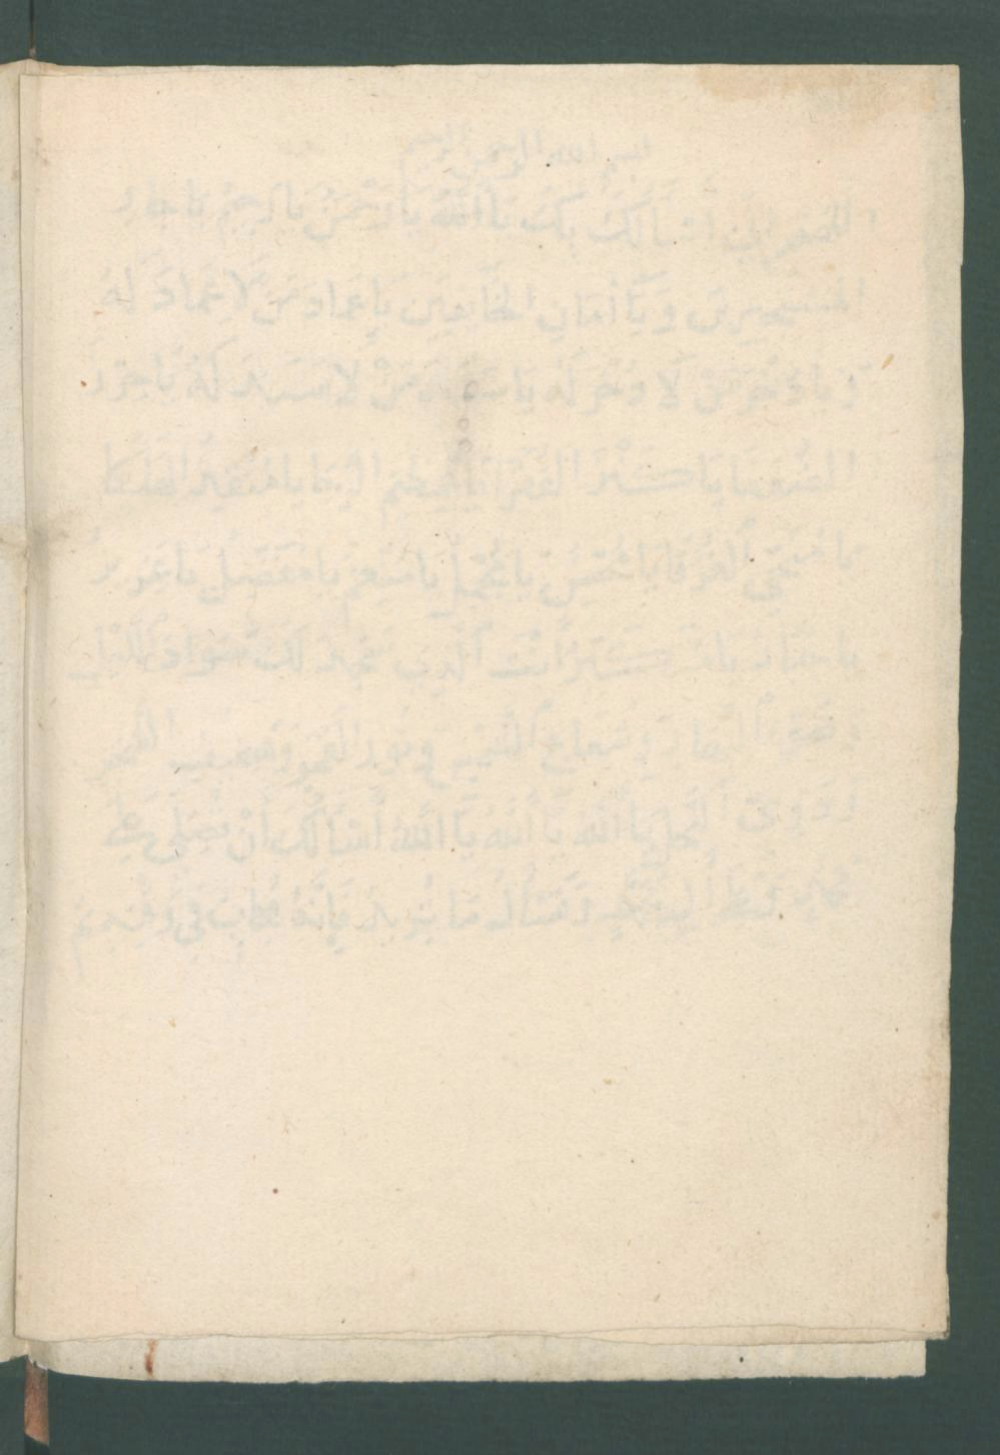 بسم الله الرحمن الرحيم
اللهم اني أسألك بك يا الله يا رحمن يا رحيم يا جار
المستجيرين ويا أمان الخائفين يا عماد من لا عماد له
ويا ذخر من لا ذخر له يا سند من لا سند له يا حرز
الضعفا يا كنز الفقرا يا عظيم الرجا يا منقذ الهلكا
يا منجي الغرقا يا محسن يا مجمل يا منعم يا مفضل يا عزيز
يا جبار يا أنت الذي سجد لك سواد الليل
وضوء النهار وشعاع الشمس ونور القمر وحفيف الشجر
ودوي يا الله يا الله يا الله أسألك أن تصلي على
محمد ما تريد فإنه